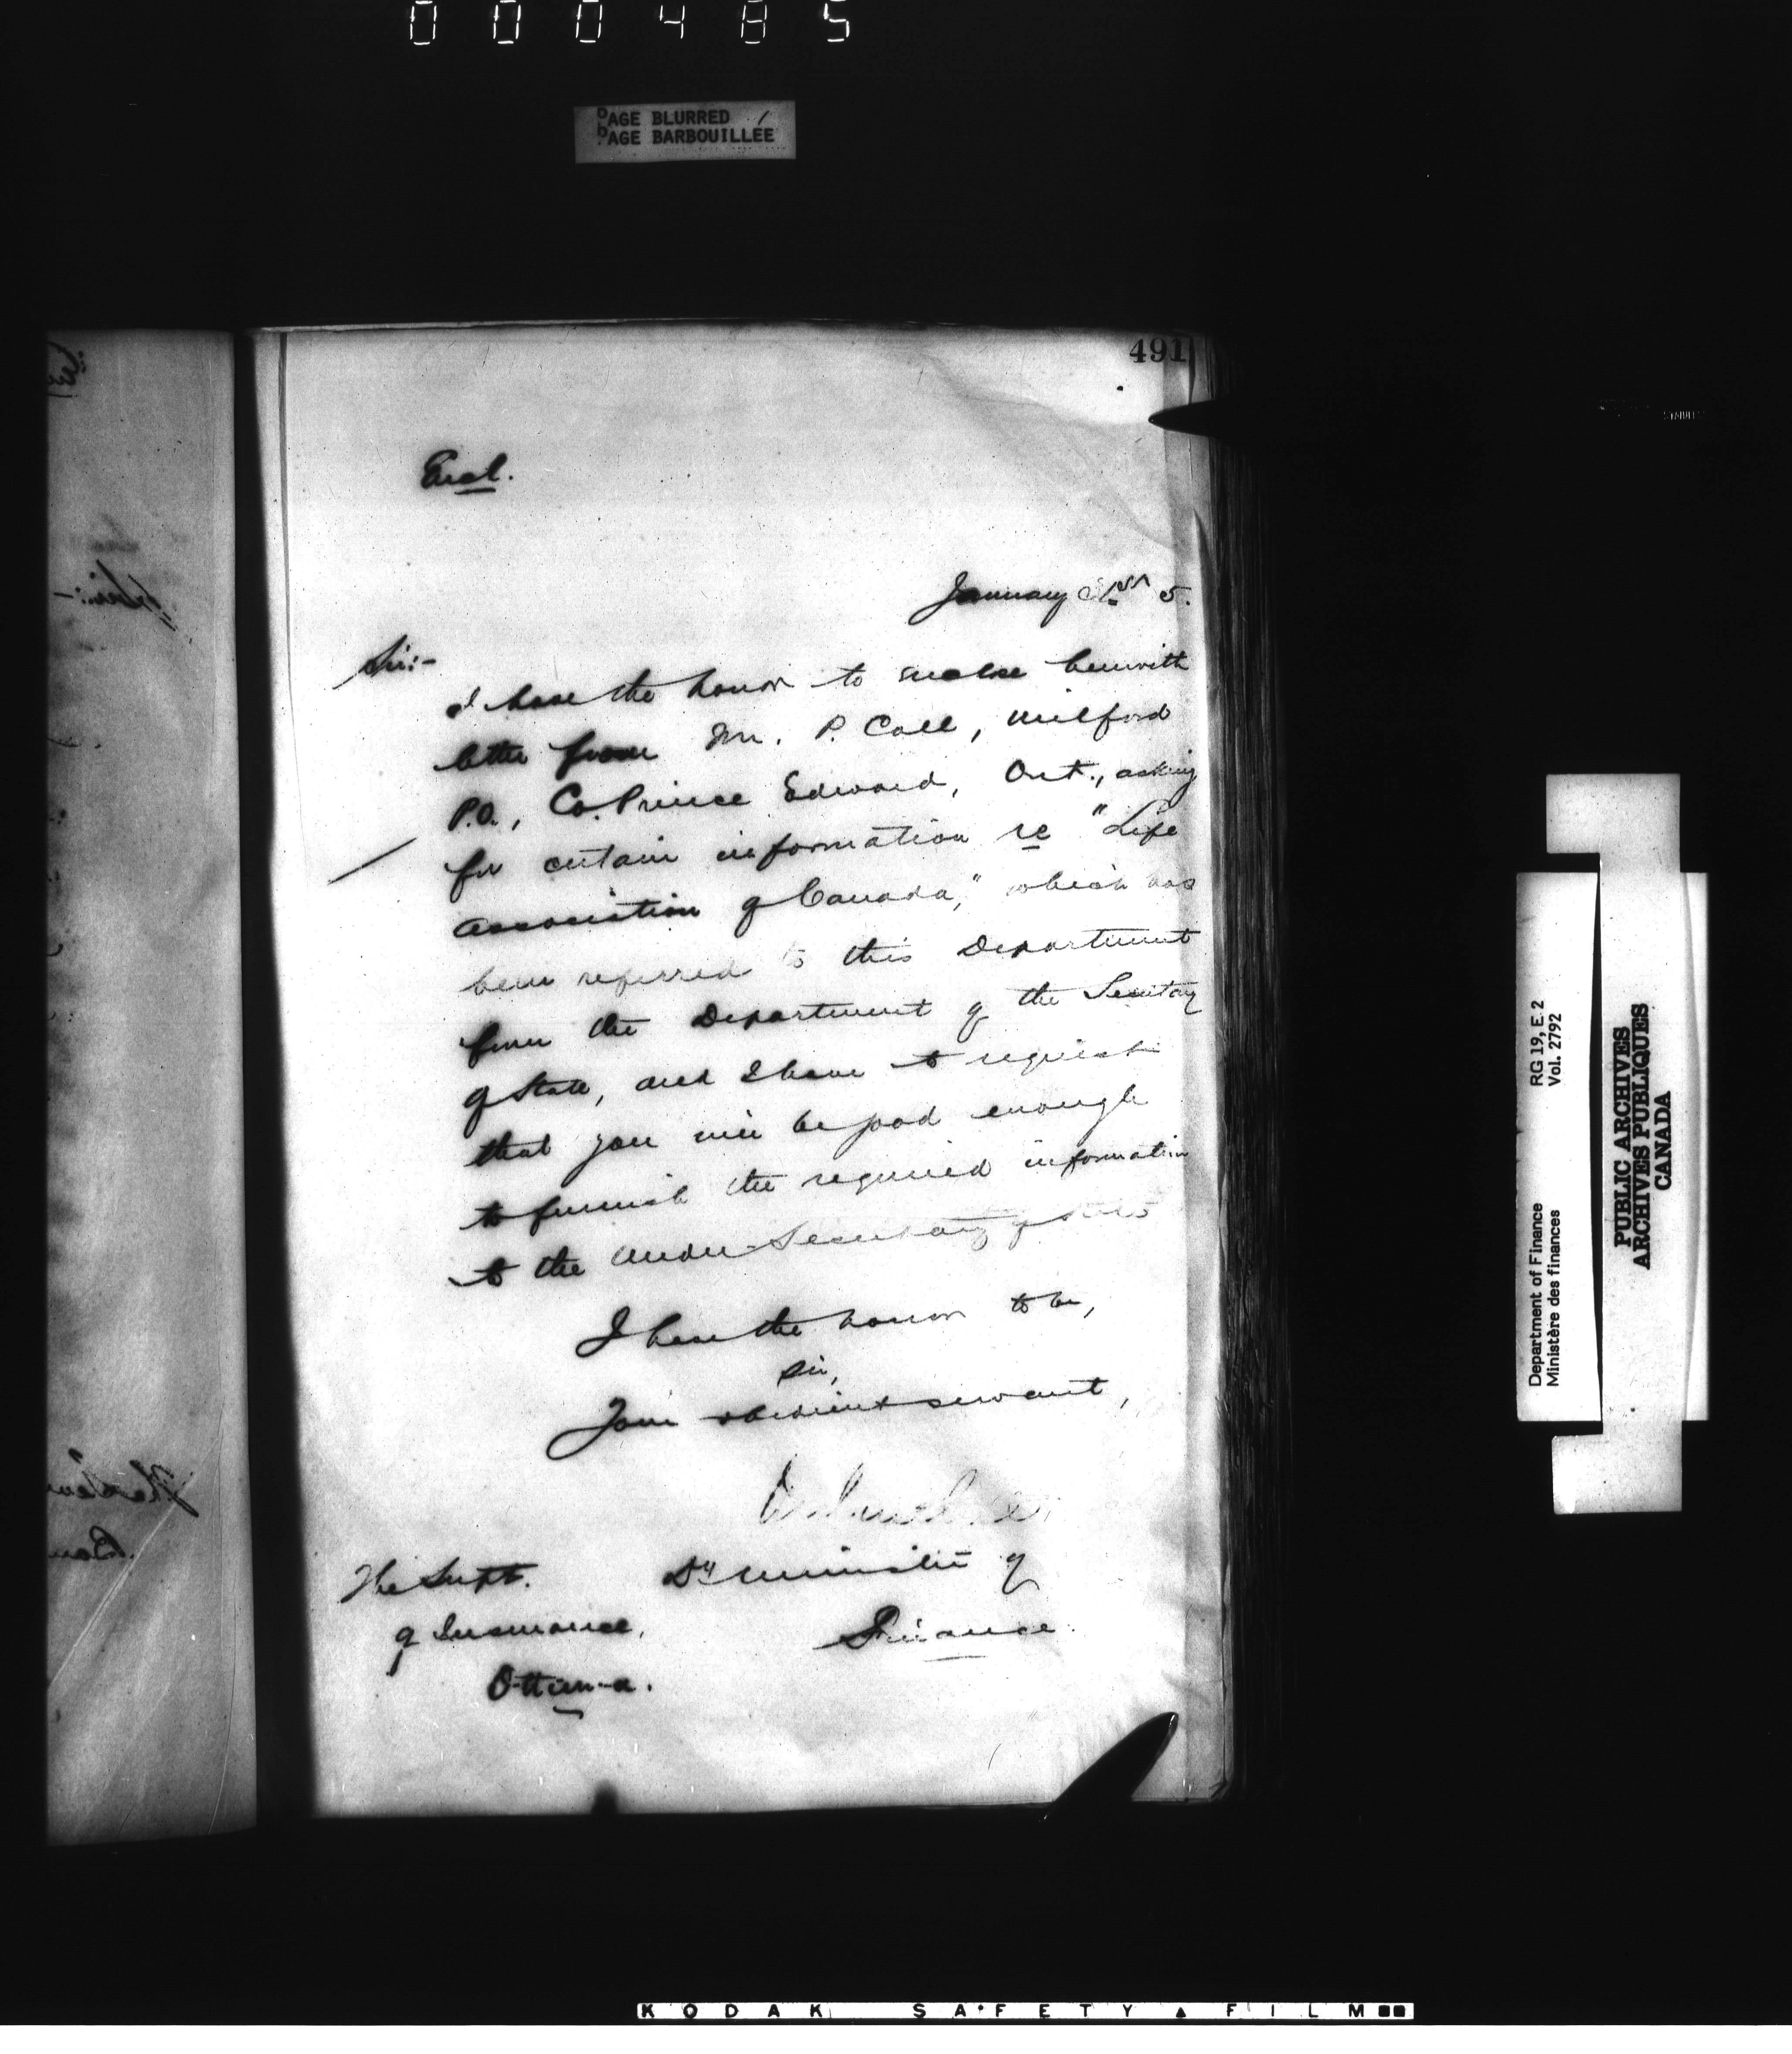 000485
PAGE BLURRED
PAGE BARBOUILLÉE
491
Encl.
January 31st 5.
Sir:-
I have the honor to enclose herewith
letter from Mr. P. Call, Milford
P.O., Co. Prince Edward, Ont., asking
for certain information re "Life
Association of Canada," which has
been referred to this Department
from the Department of the Secretary
of State, and I have to request
that you will be good enough
to furnish the required information
to the Under-Secretary of State
I have the honor to be,
Sir,
Your obedient servant,
Dy Minister of
Finance.
The Supt.
of Insurance,
Ottawa.
Department of Finance RG 19, E. 2
Ministère des finances Vol. 2792
PUBLIC ARCHIVES
ARCHIVES PUBLIQUES
CANADA
KODAK SAFETY FILM